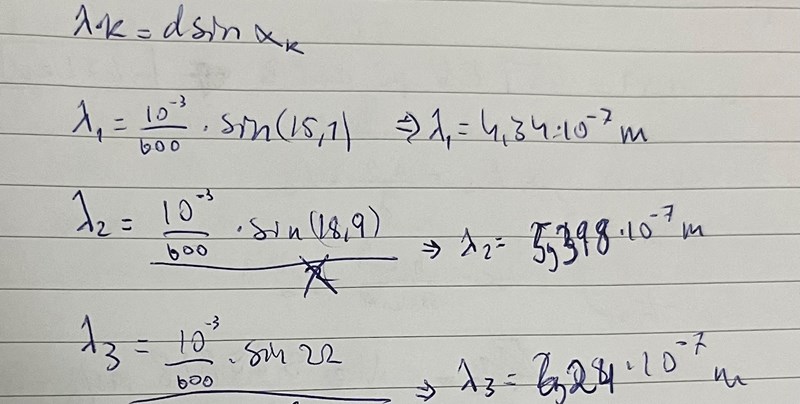 λ·k = d sin α_k
λ₁ = 10⁻³/600 · sin(15,1) ⇒ λ₁ = 4,34·10⁻⁷ m
λ₂ = 10⁻³/600 · sin(18,9) ⇒ λ₂ = 5,398·10⁻⁷ m
λ₃ = 10⁻³/600 · sin 22 ⇒ λ₃ = 6,24·10⁻⁷ m